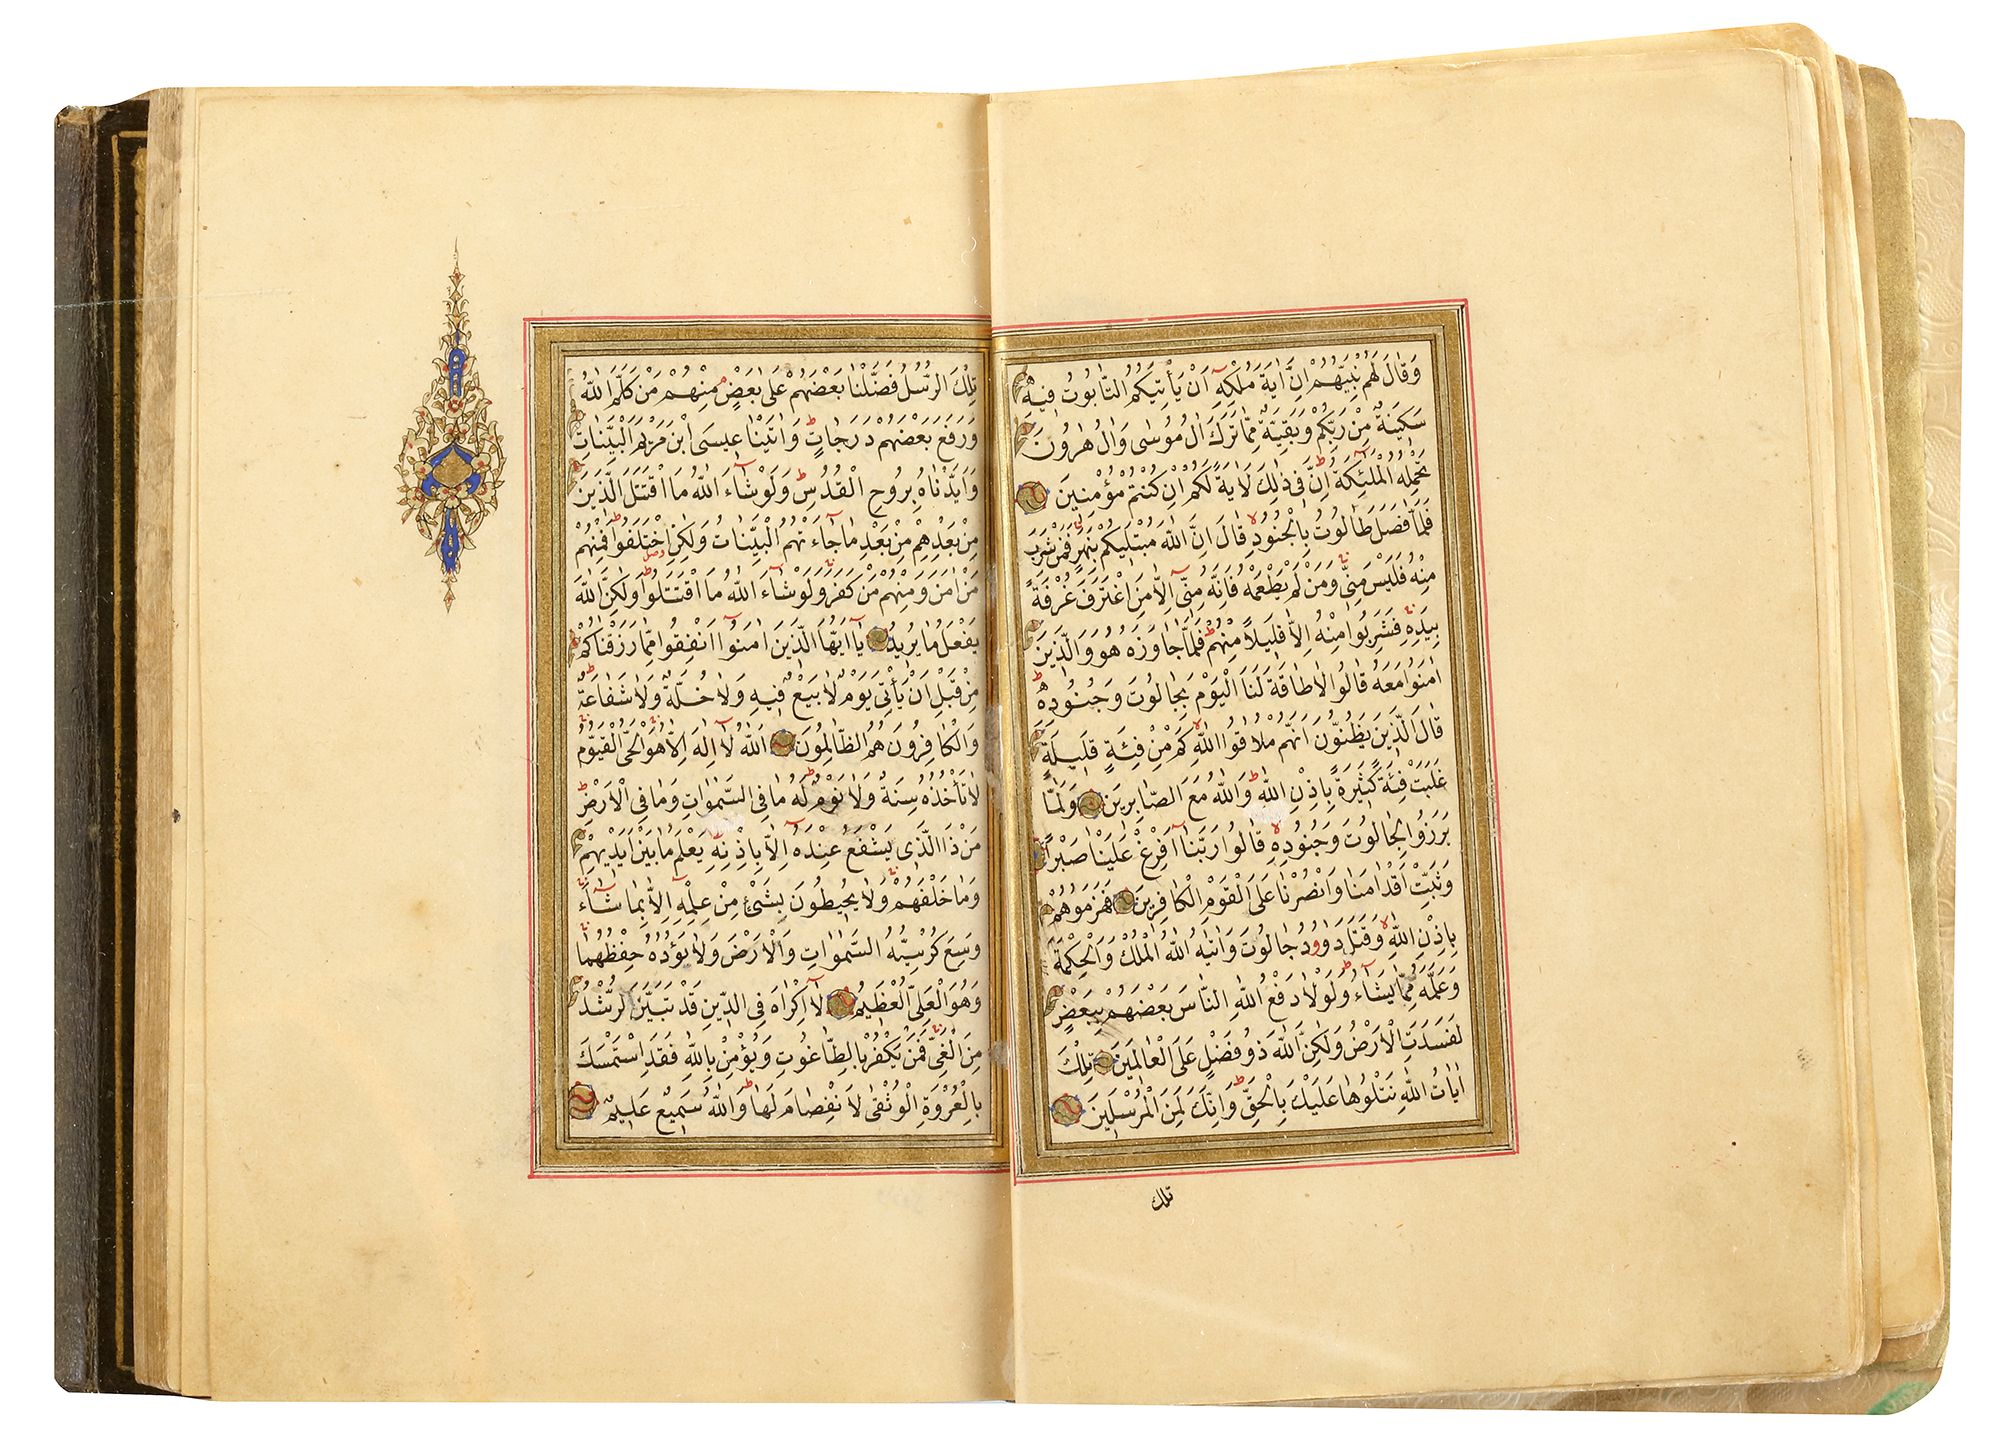 وَقَالَ لَهُمْ نَبِيُّهُمْ اِنَّ اٰيَةَ مُلْكِهٖٓ اَنْ يَأْتِيَكُمُ التَّابُوتُ فِيهِ
سَكِينَةٌ مِنْ رَبِّكُمْ وَبَقِيَّةٌ مِمَّا تَرَكَ اٰلُ مُوسٰى وَاٰلُ هٰرُونَ
تَحْمِلُهُ الْمَلٰٓئِكَةُ ط اِنَّ فِى ذٰلِكَ لَاٰيَةً لَكُمْ اِنْ كُنْتُمْ مُؤْمِنِينَ
فَلَمَّا فَصَلَ طَالُوتُ بِالْجُنُودِ لا قَالَ اِنَّ اللّٰهَ مُبْتَلِيكُمْ بِنَهَرٍ فَمَنْ شَرِبَ
مِنْهُ فَلَيْسَ مِنِّى وَمَنْ لَمْ يَطْعَمْهُ فَاِنَّهُ مِنِّىٓ اِلَّا مَنِ اغْتَرَفَ غُرْفَةً
بِيَدِهٖ فَشَرِبُوا مِنْهُ اِلَّا قَلِيلًا مِنْهُمْ ط فَلَمَّا جَاوَزَهُ هُوَ وَالَّذِينَ
اٰمَنُوا مَعَهُ قَالُوا لَا طَاقَةَ لَنَا الْيَوْمَ بِجَالُوتَ وَجُنُودِهٖ ط
قَالَ الَّذِينَ يَظُنُّونَ اَنَّهُمْ مُلَاقُوا اللّٰهِ لا كَمْ مِنْ فِئَةٍ قَلِيلَةٍ
غَلَبَتْ فِئَةً كَثِيرَةً بِاِذْنِ اللّٰهِ ط وَاللّٰهُ مَعَ الصَّابِرِينَ وَلَمَّا
بَرَزُوا لِجَالُوتَ وَجُنُودِهٖ لا قَالُوا رَبَّنَآ اَفْرِغْ عَلَيْنَا صَبْرًا
وَثَبِّتْ اَقْدَامَنَا وَانْصُرْنَا عَلَى الْقَوْمِ الْكَافِرِينَ فَهَزَمُوهُمْ
بِاِذْنِ اللّٰهِ لا وَقَتَلَ دَاوُودُ جَالُوتَ وَاٰتٰيهُ اللّٰهُ الْمُلْكَ وَالْحِكْمَةَ
وَعَلَّمَهُ مِمَّا يَشَآءُ ط وَلَوْلَا دَفْعُ اللّٰهِ النَّاسَ بَعْضَهُمْ بِبَعْضٍ
لَفَسَدَتِ الْاَرْضُ وَلٰكِنَّ اللّٰهَ ذُو فَضْلٍ عَلَى الْعَالَمِينَ تِلْكَ
اٰيَاتُ اللّٰهِ نَتْلُوهَا عَلَيْكَ بِالْحَقِّ ط وَاِنَّكَ لَمِنَ الْمُرْسَلِينَ
تلك
تِلْكَ الرُّسُلُ فَضَّلْنَا بَعْضَهُمْ عَلٰى بَعْضٍ م مِنْهُمْ مَنْ كَلَّمَ اللّٰهُ
وَرَفَعَ بَعْضَهُمْ دَرَجَاتٍ ط وَاٰتَيْنَا عِيسَى ابْنَ مَرْيَمَ الْبَيِّنَاتِ
وَاَيَّدْنَاهُ بِرُوحِ الْقُدُسِ ط وَلَوْ شَآءَ اللّٰهُ مَا اقْتَتَلَ الَّذِينَ
مِنْ بَعْدِهِمْ مِنْ بَعْدِ مَا جَآءَتْهُمُ الْبَيِّنَاتُ وَلٰكِنِ اخْتَلَفُوا فَمِنْهُمْ
مَنْ اٰمَنَ وَمِنْهُمْ مَنْ كَفَرَ ط وَلَوْ شَآءَ اللّٰهُ مَا اقْتَتَلُوا وَلٰكِنَّ اللّٰهَ
يَفْعَلُ مَا يُرِيدُ يَآ اَيُّهَا الَّذِينَ اٰمَنُوٓا اَنْفِقُوا مِمَّا رَزَقْنَاكُمْ
مِنْ قَبْلِ اَنْ يَأْتِىَ يَوْمٌ لَا بَيْعٌ فِيهِ وَلَا خُلَّةٌ وَلَا شَفَاعَةٌ ط
وَالْكَافِرُونَ هُمُ الظَّالِمُونَ اَللّٰهُ لَآ اِلٰهَ اِلَّا هُوَ الْحَىُّ الْقَيُّومُ
لَا تَأْخُذُهُ سِنَةٌ وَلَا نَوْمٌ ط لَهُ مَا فِى السَّمٰوَاتِ وَمَا فِى الْاَرْضِ ط
مَنْ ذَا الَّذِى يَشْفَعُ عِنْدَهُٓ اِلَّا بِاِذْنِهٖ ط يَعْلَمُ مَا بَيْنَ اَيْدِيهِمْ
وَمَا خَلْفَهُمْ وَلَا يُحِيطُونَ بِشَىْءٍ مِنْ عِلْمِهٖٓ اِلَّا بِمَا شَآءَ
وَسِعَ كُرْسِيُّهُ السَّمٰوَاتِ وَالْاَرْضَ وَلَا يَؤُدُهُ حِفْظُهُمَا
وَهُوَ الْعَلِىُّ الْعَظِيمُ لَآ اِكْرَاهَ فِى الدِّينِ قَدْ تَبَيَّنَ الرُّشْدُ
مِنَ الْغَىِّ فَمَنْ يَكْفُرْ بِالطَّاغُوتِ وَيُؤْمِنْ بِاللّٰهِ فَقَدِ اسْتَمْسَكَ
بِالْعُرْوَةِ الْوُثْقٰى لَا انْفِصَامَ لَهَا ط وَاللّٰهُ سَمِيعٌ عَلِيمٌ